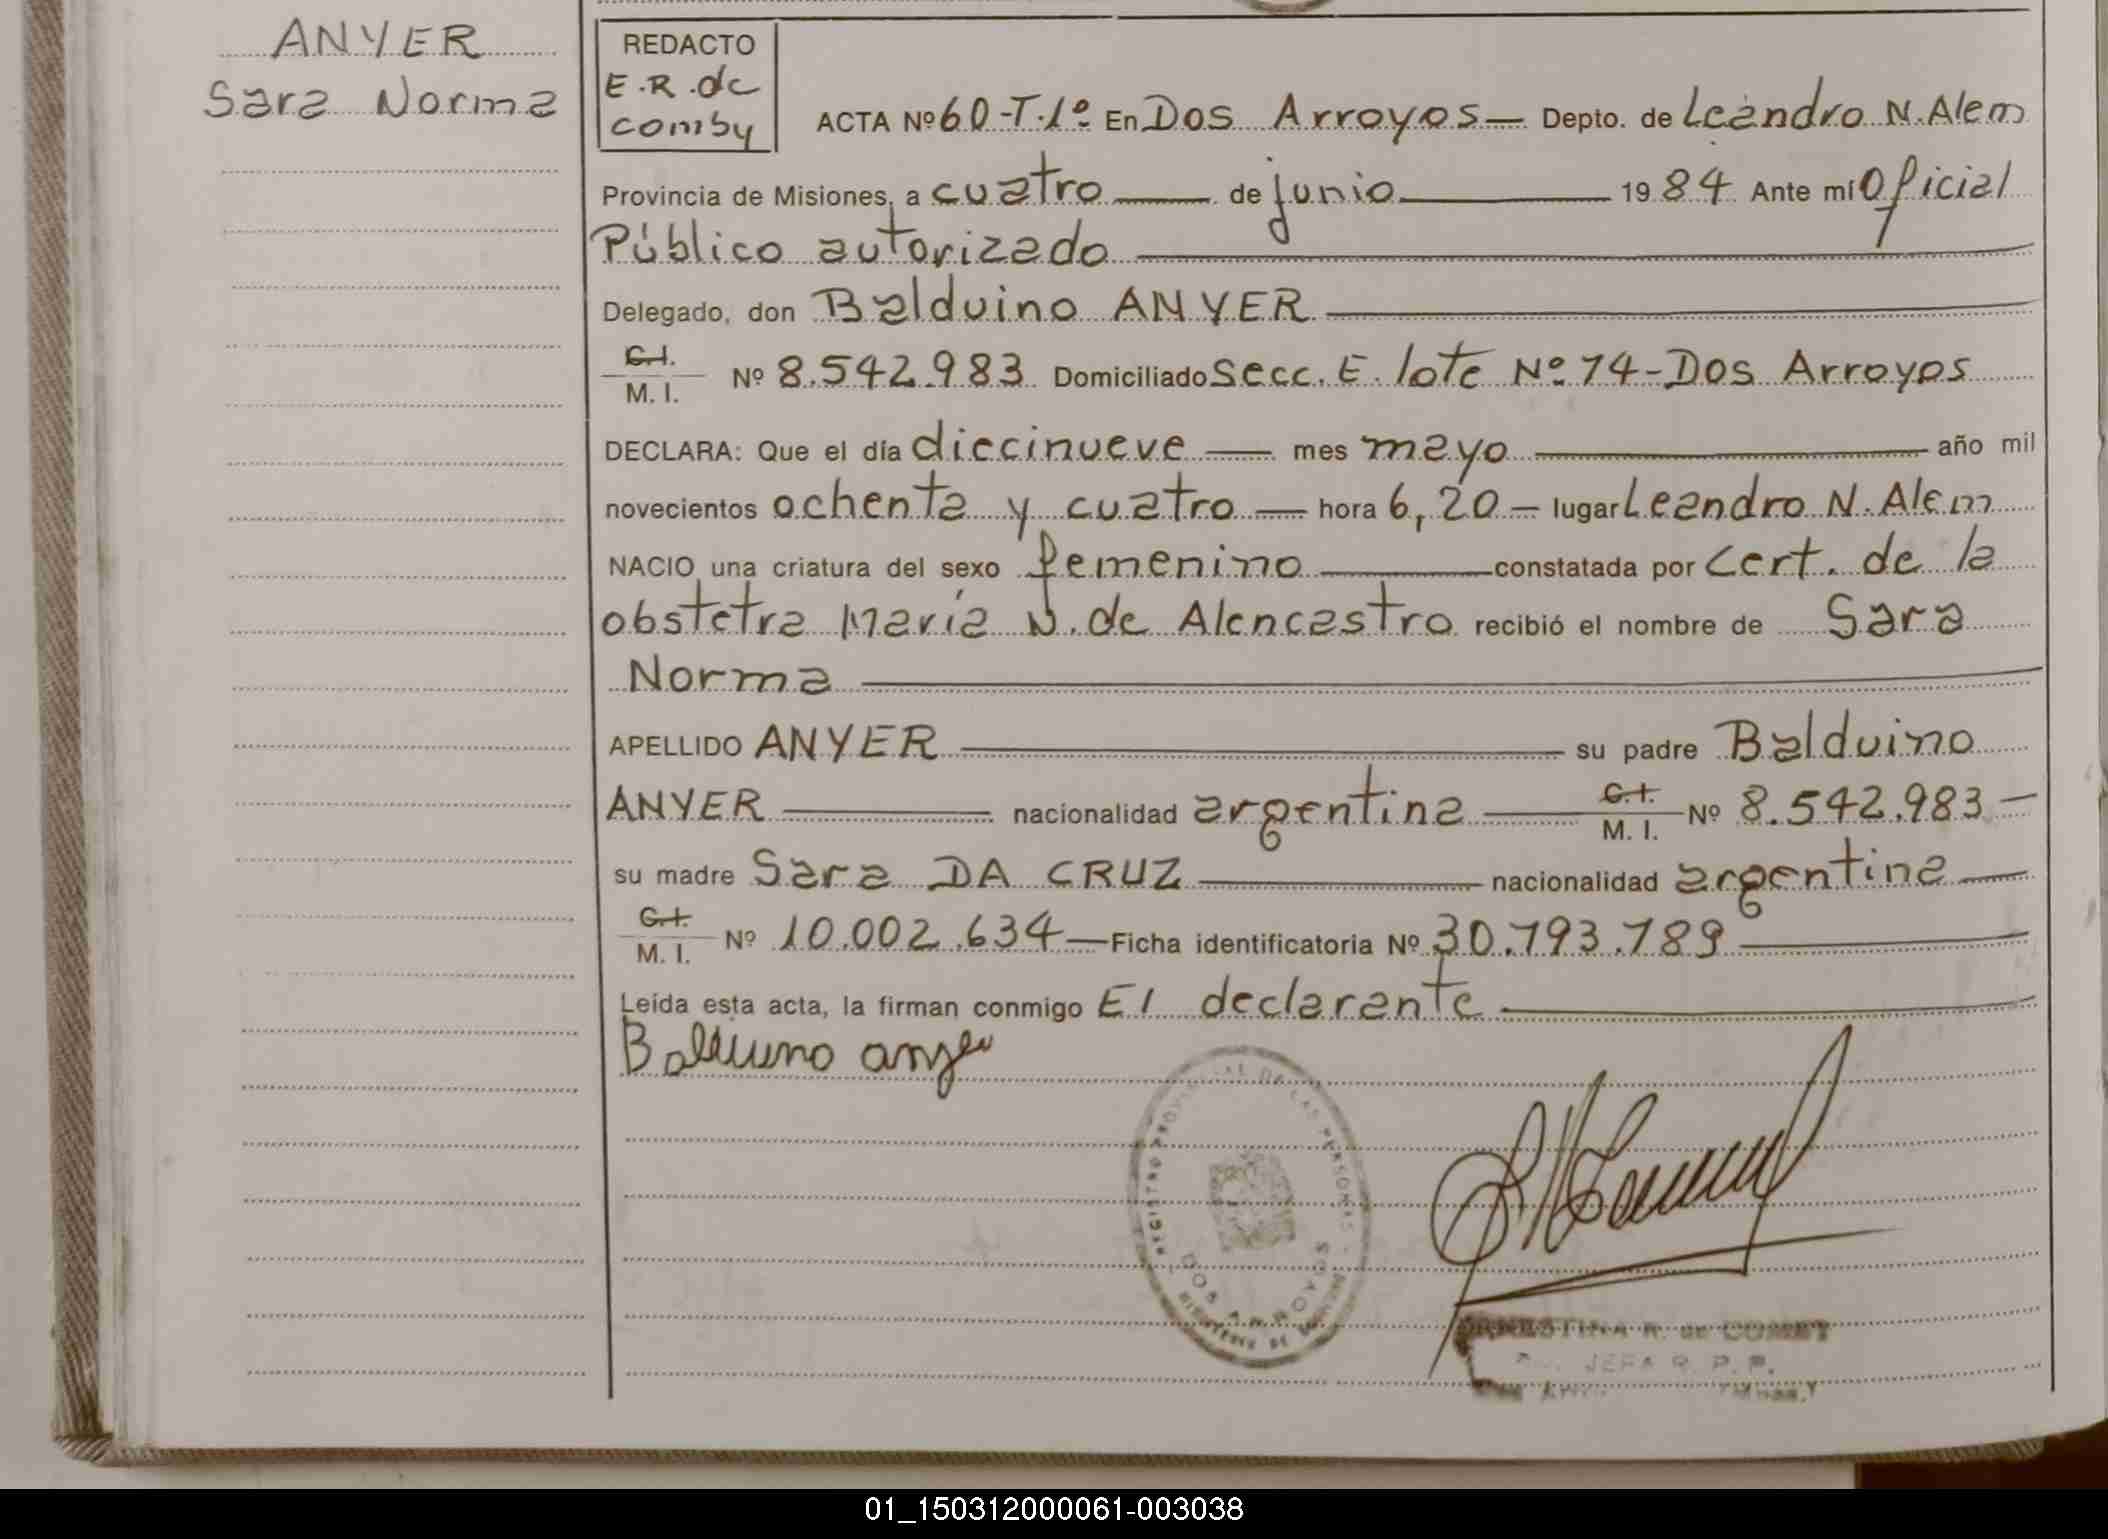 ANYER
Sara Norma
REDACTO
E.R. de
comby
ACTA Nº 60-T.1º En Dos Arroyos— Depto. de Leandro N. Alem
Provincia de Misiones, a cuatro —— de junio —— 1984 Ante mí Oficial
Público autorizado
Delegado, don Balduino ANYER
C.I.
M. I. Nº 8.542.983 Domiciliado Secc. E. lote Nº 14-Dos Arroyos
DECLARA: Que el día diecinueve — mes mayo —— año mil
novecientos ochenta y cuatro — hora 6,20 — lugar Leandro N. Alem
NACIO una criatura del sexo femenino —— constatada por Cert. de la
obstetra María N. de Alencastro recibió el nombre de Sara
Norma
APELLIDO ANYER —— su padre Balduino
ANYER —— nacionalidad argentina — C.I. M. I. Nº 8.542.983 —
su madre Sara DA CRUZ —— nacionalidad argentina —
C.I.
M. I. Nº 10.002.634 — Ficha identificatoria Nº 30.793.789
Leída esta acta, la firman conmigo El declarante
Balduino anyer
REGISTRO PROVINCIAL DE LAS PERSONAS
DOS ARROYOS
ERNESTINA R. de COMBY
JEFA R. P. P.
01_150312000061-003038